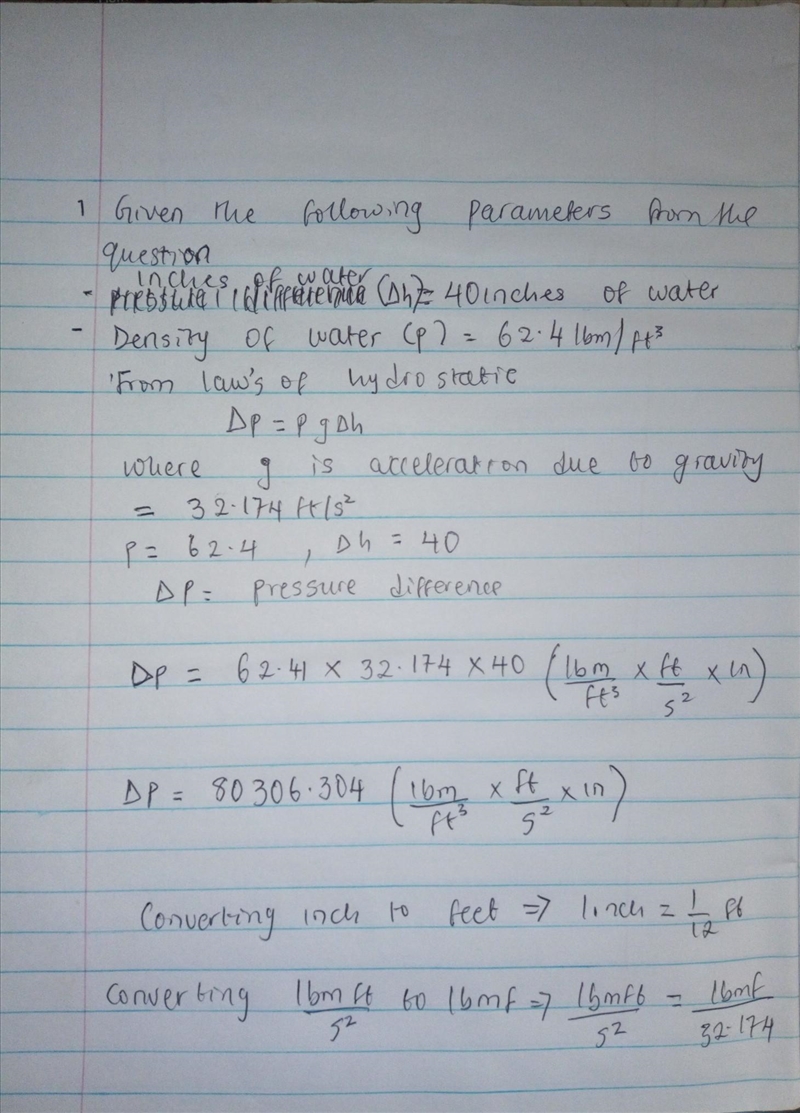 1 Given the following parameters from the
question
inches of water
- (Δh) = 40 inches of water
- Density of water (ρ) = 62.4 lbm/ft³
From law's of hydrostatic
Δp = ρgΔh
where g is acceleration due to gravity
= 32.174 ft/s²
ρ = 62.4 , Δh = 40
ΔP = pressure difference
ΔP = 62.41 × 32.174 × 40 (lbm/ft³ × ft/s² × in)
ΔP = 80306.304 (lbm/ft³ × ft/s² × in)
Converting inch to feet => 1 inch = 1/12 ft
Converting lbm ft/s² to lbmf => lbmft/s² = lbmf/32.174